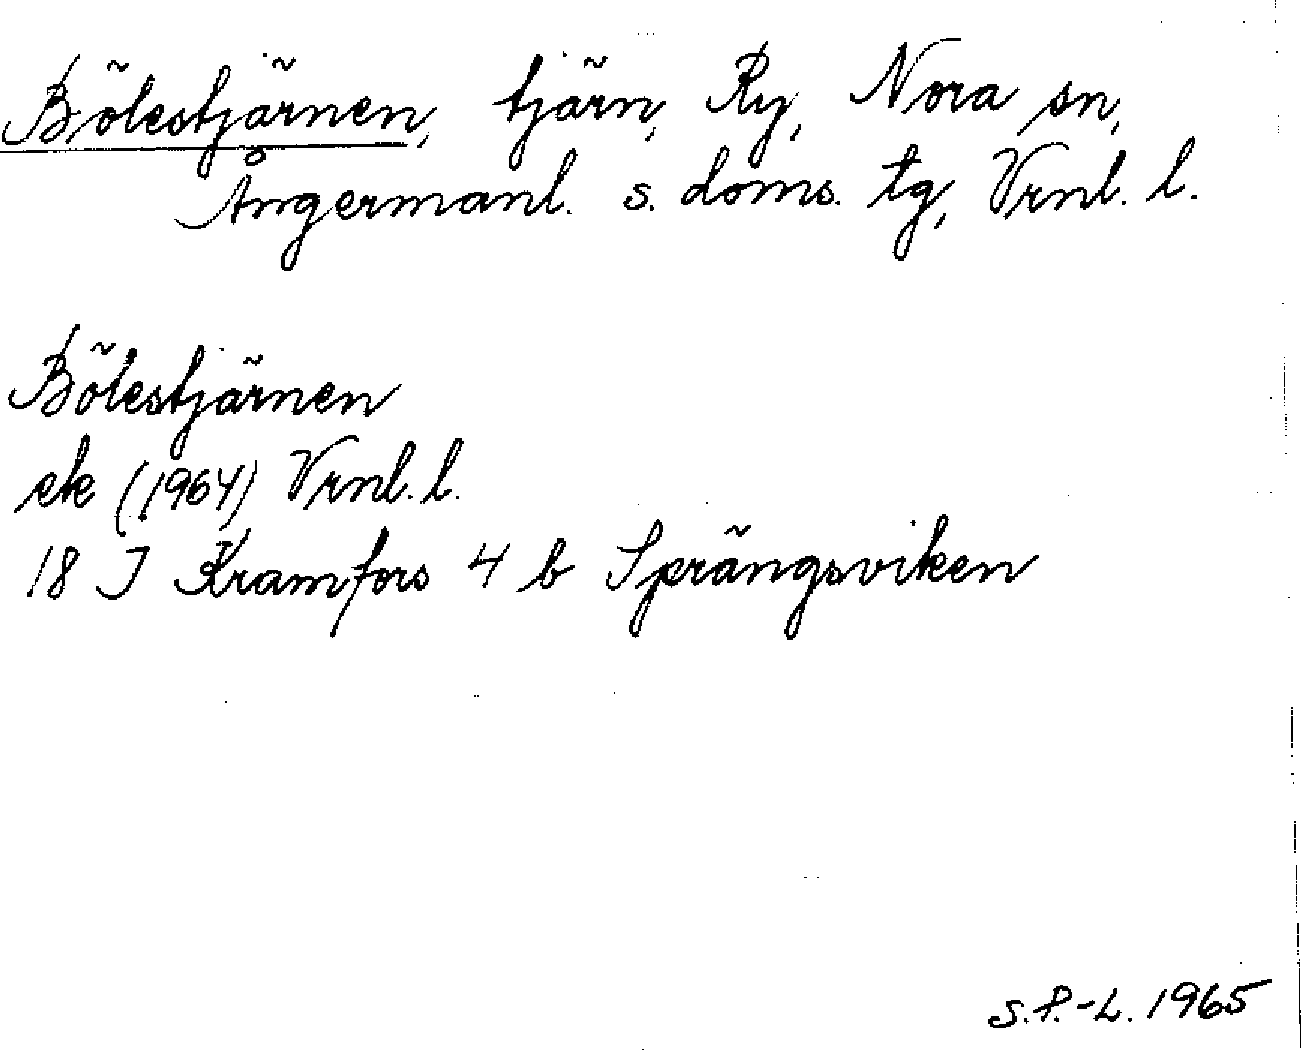 Bölestjärnen, tjärn, Ry, Nora sn,
Ångermanl. s. doms. tg, Vrnl. l.
Bölestjärnen
ek (1964) Vrnl. l.
18 I Kramfors 4 b Sprängsviken
S.P.-L. 1965